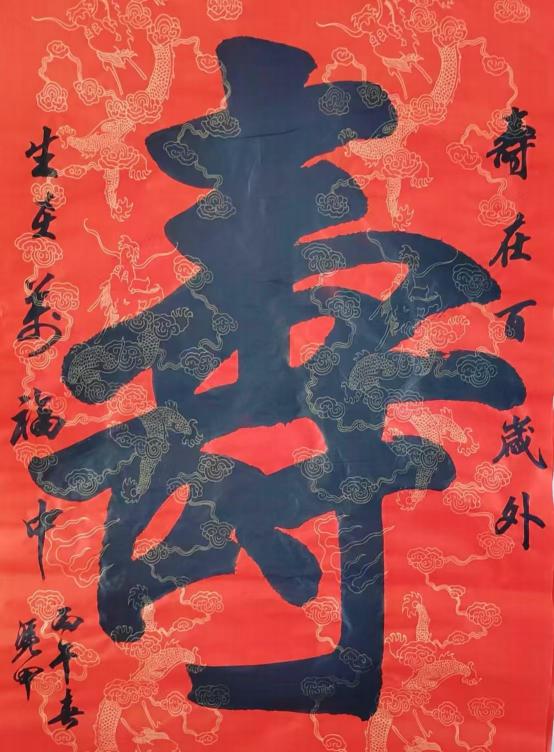 壽
壽在百歲外
生 萬福中
丙午春